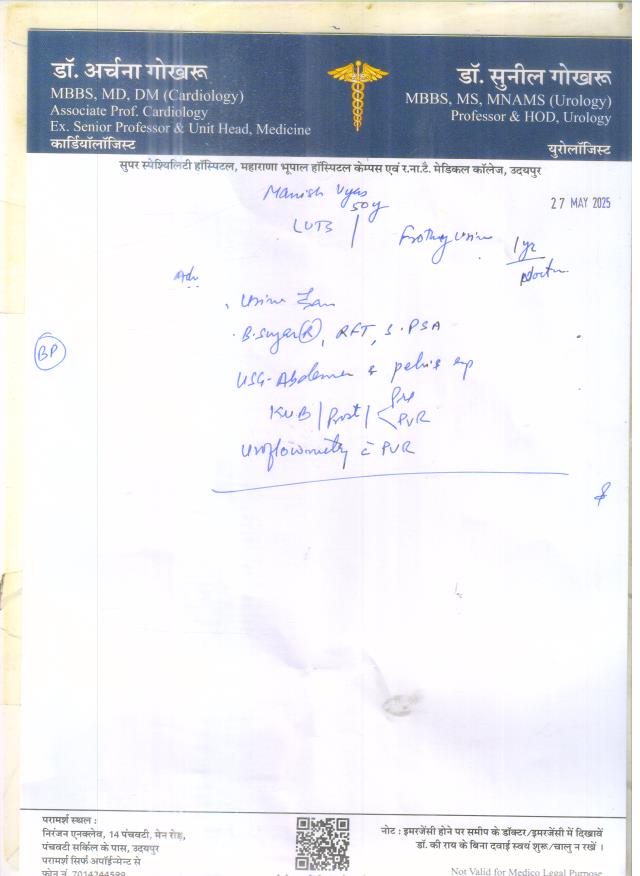 डॉ. अर्चना गोखरू
MBBS, MD, DM (Cardiology)
Associate Prof. Cardiology
Ex. Senior Professor & Unit Head, Medicine
कार्डियॉलॉजिस्ट
डॉ. सुनील गोखरू
MBBS, MS, MNAMS (Urology)
Professor & HOD, Urology
यूरोलॉजिस्ट
सुपर स्पेश्यिलिटी हॉस्पिटल, महाराणा भूपाल हॉस्पिटल केम्पस एवं र.ना.टै. मेडिकल कॉलेज, उदयपुर
Manish Vyas
50y
27 MAY 2025
LUTS
Frothy Urine
1 yr
Adv
Urine
B. Sugar (R), RFT, S. PSA
BP
USG - Abdomen & pelvis
KUB | Prost | Pre
PVR
Uroflowmetry c̄ PVR
परामर्श स्थल :
निरंजन एनक्लेव, 14 पंचवटी, मेन रोड,
पंचवटी सर्किल के पास, उदयपुर
परामर्श सिर्फ अपॉईन्मेन्ट से
फोन नं. 7014744599
नोट : इमरजेंसी होने पर समीप के डॉक्टर/इमरजेंसी में दिखावें
डॉ. की राय के बिना दवाई स्वयं शुरू/चालु न रखें ।
Not Valid for Medico Legal Purpose